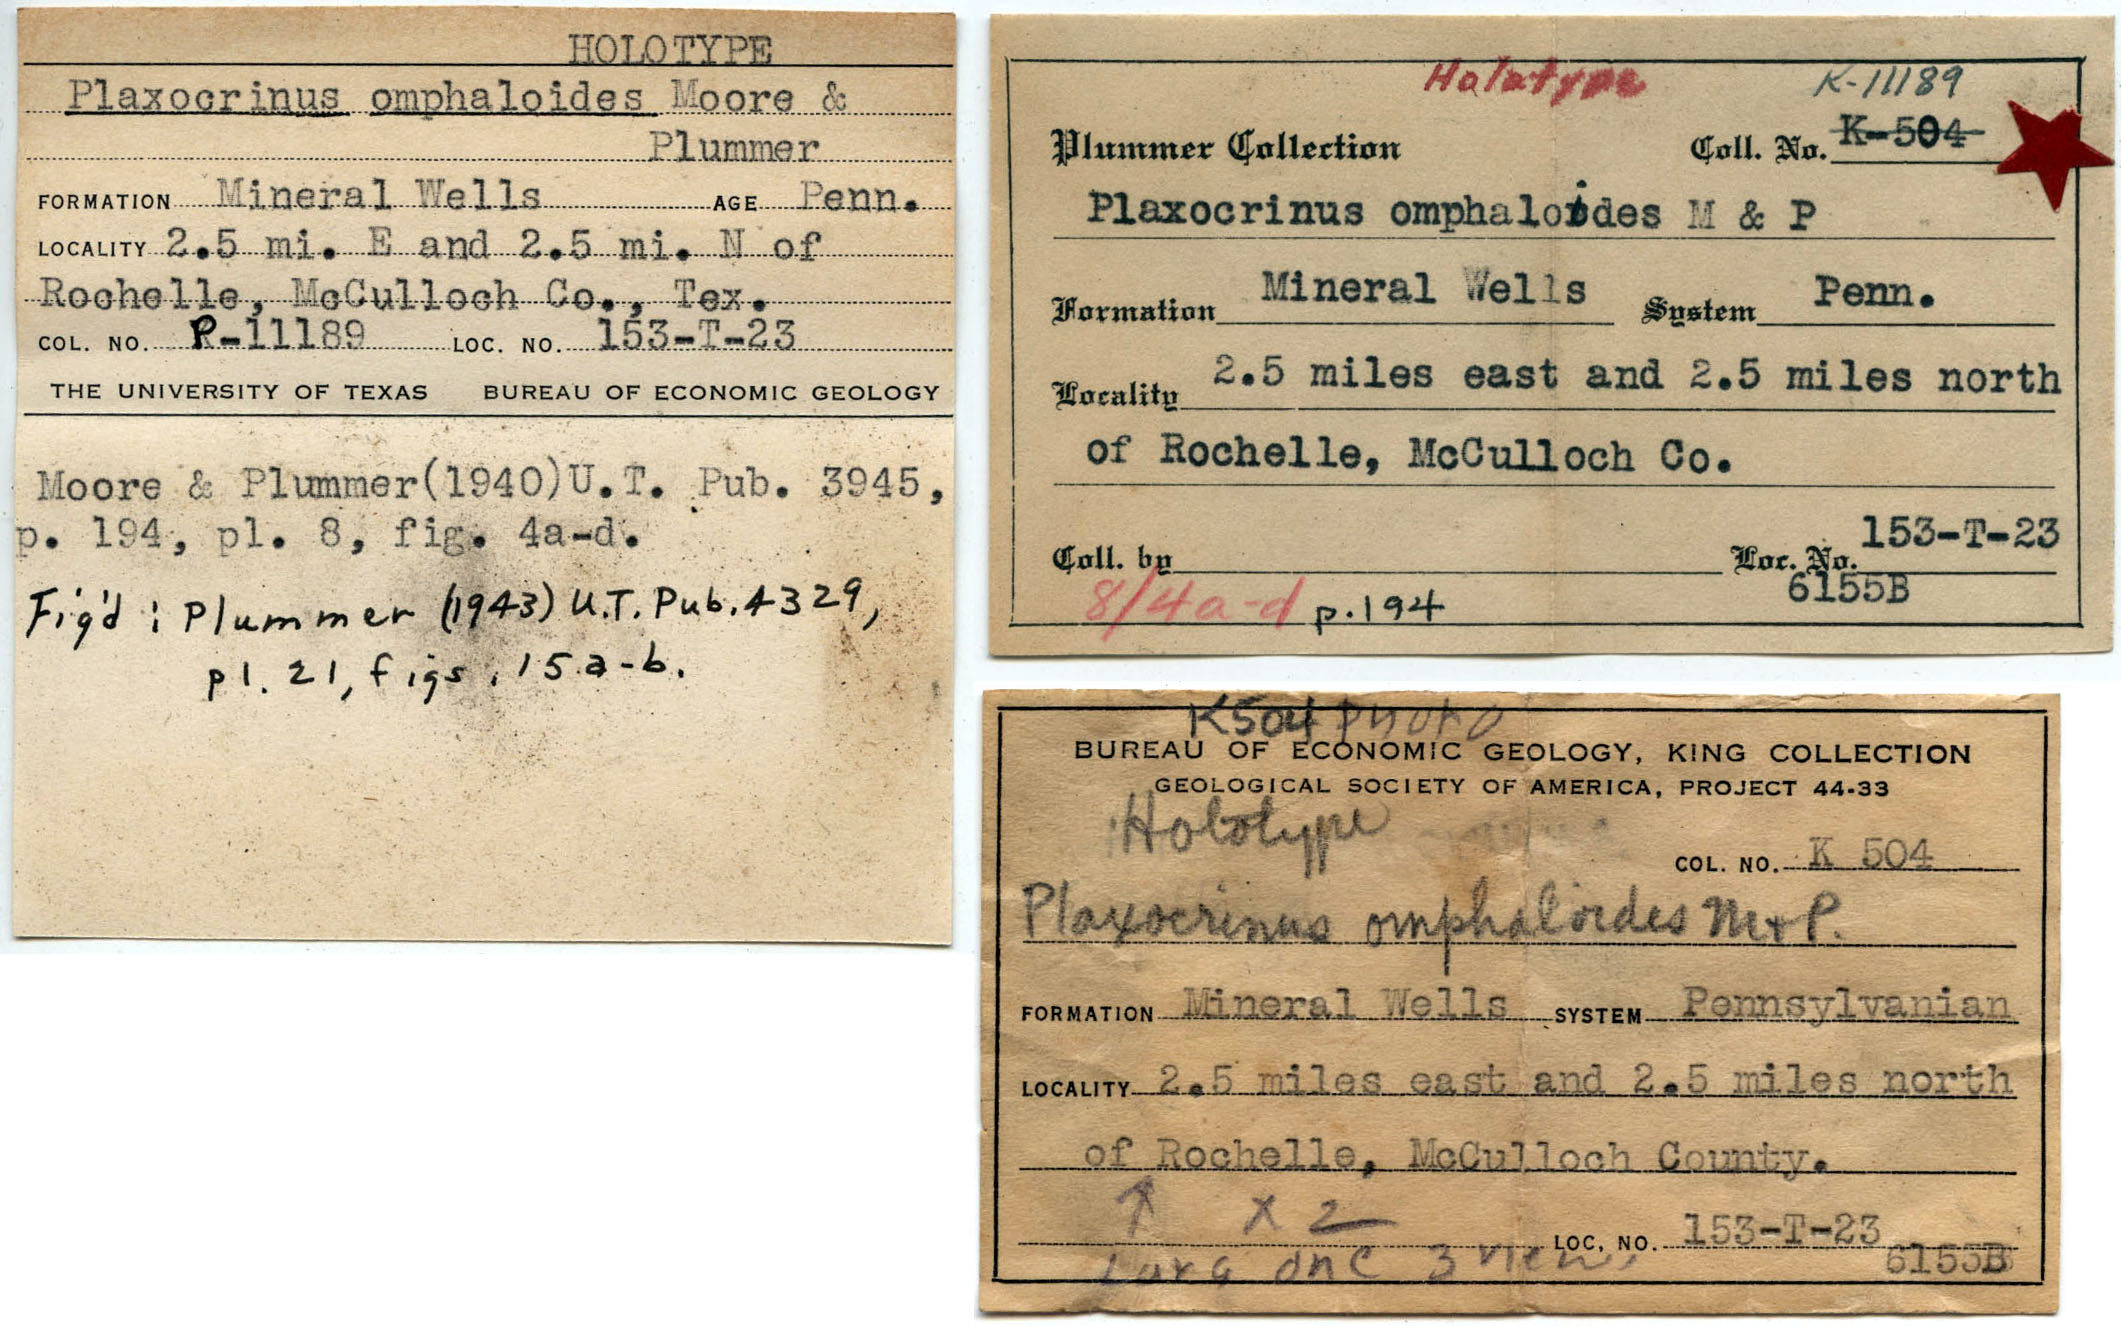 HOLOTYPE
Plaxocrinus omphaloides Moore &
Plummer
FORMATION Mineral Wells AGE Penn.
LOCALITY 2.5 mi. E and 2.5 mi. N of
Rochelle, McCulloch Co., Tex.
COL. NO. P-11189 LOC. NO. 153-T-23
THE UNIVERSITY OF TEXAS BUREAU OF ECONOMIC GEOLOGY
Moore & Plummer(1940)U.T. Pub. 3945,
p. 194, pl. 8, fig. 4a-d.
Fig'd: Plummer (1943) U.T. Pub. 4329,
pl. 21, figs. 15a-b.
Holotype K-11189
Plummer Collection Coll. No. K-504
Plaxocrinus omphaloides M & P
Formation Mineral Wells System Penn.
Locality 2.5 miles east and 2.5 miles north
of Rochelle, McCulloch Co.
Coll. by Loc. No. 153-T-23
8/4a-d p.194 6155B
K504 photo
BUREAU OF ECONOMIC GEOLOGY, KING COLLECTION
GEOLOGICAL SOCIETY OF AMERICA, PROJECT 44-33
Holotype
COL. NO. K 504
Plaxocrinus omphaloides M+P.
FORMATION Mineral Wells SYSTEM Pennsylvanian
LOCALITY 2.5 miles east and 2.5 miles north
of Rochelle, McCulloch County.
↑ X 2
LOC. NO. 153-T-23
one 3 view 6155B